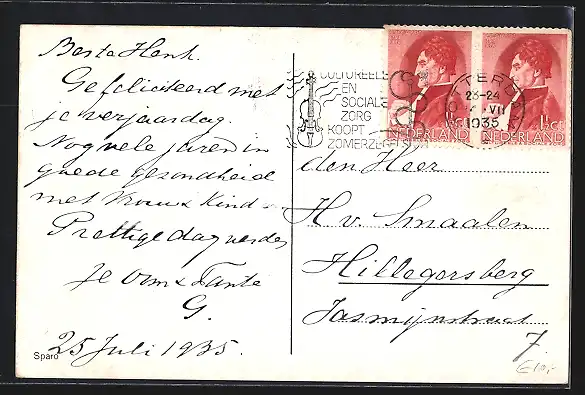 Beste Henk.
Gefeliciteerd met
je verjaardag.
Nog vele jaren in
goede gezondheid
met Vrouw & Kind.
Prettige dag verder
Je Oom & Tante
G.
25 Juli 1935.
Sparo
CULTUREELE
EN
SOCIALE
ZORG
KOOPT
ZOMERZEGELS
23-24
VII
1935
NEDERLAND
NEDERLAND
1½ CT
den Heer
H. v. Smaalen
Hillegersberg
Jasmijnstraat
7.